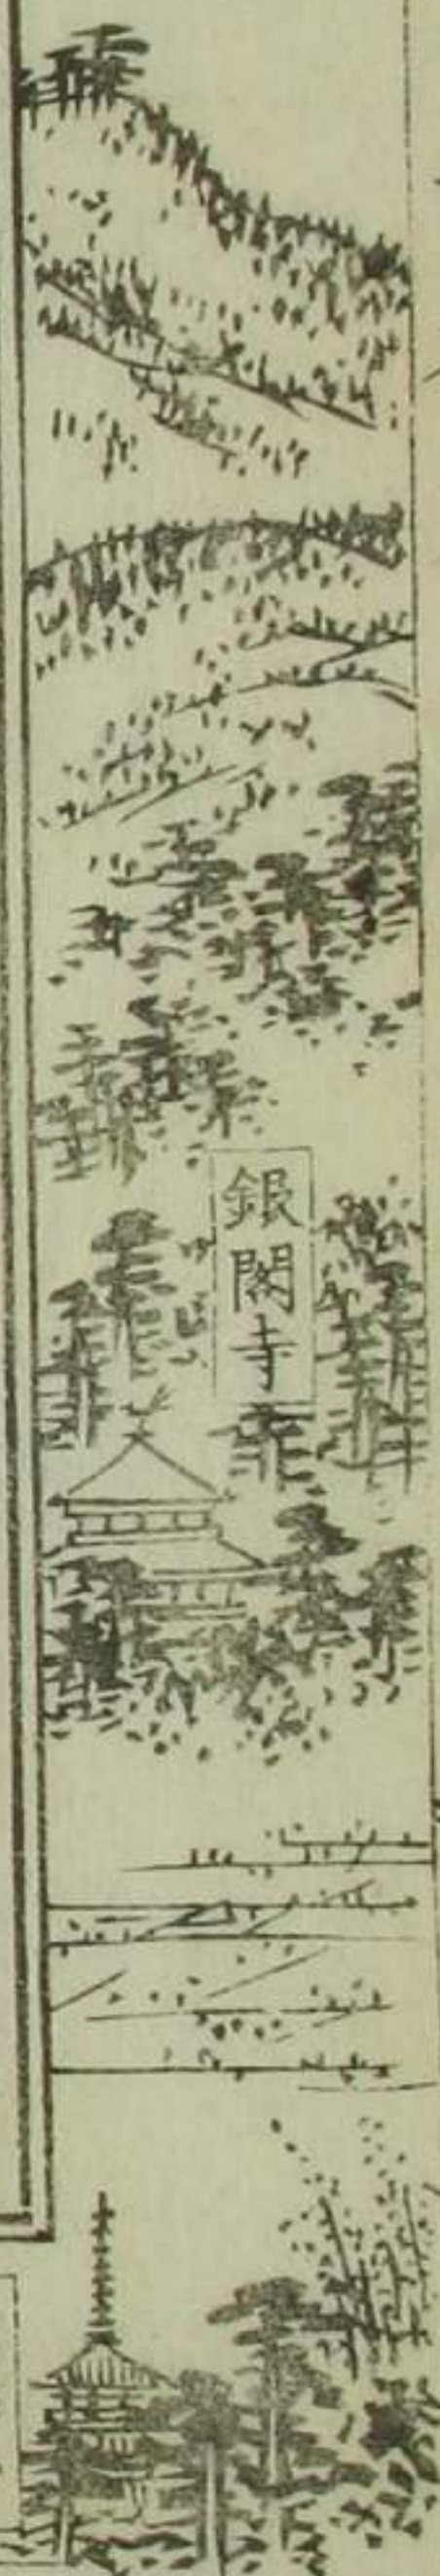 銀閣寺